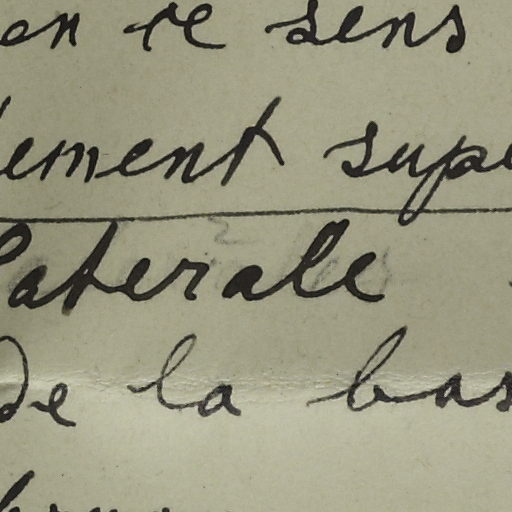 en ce sens
ement supe
laterale
de la bas